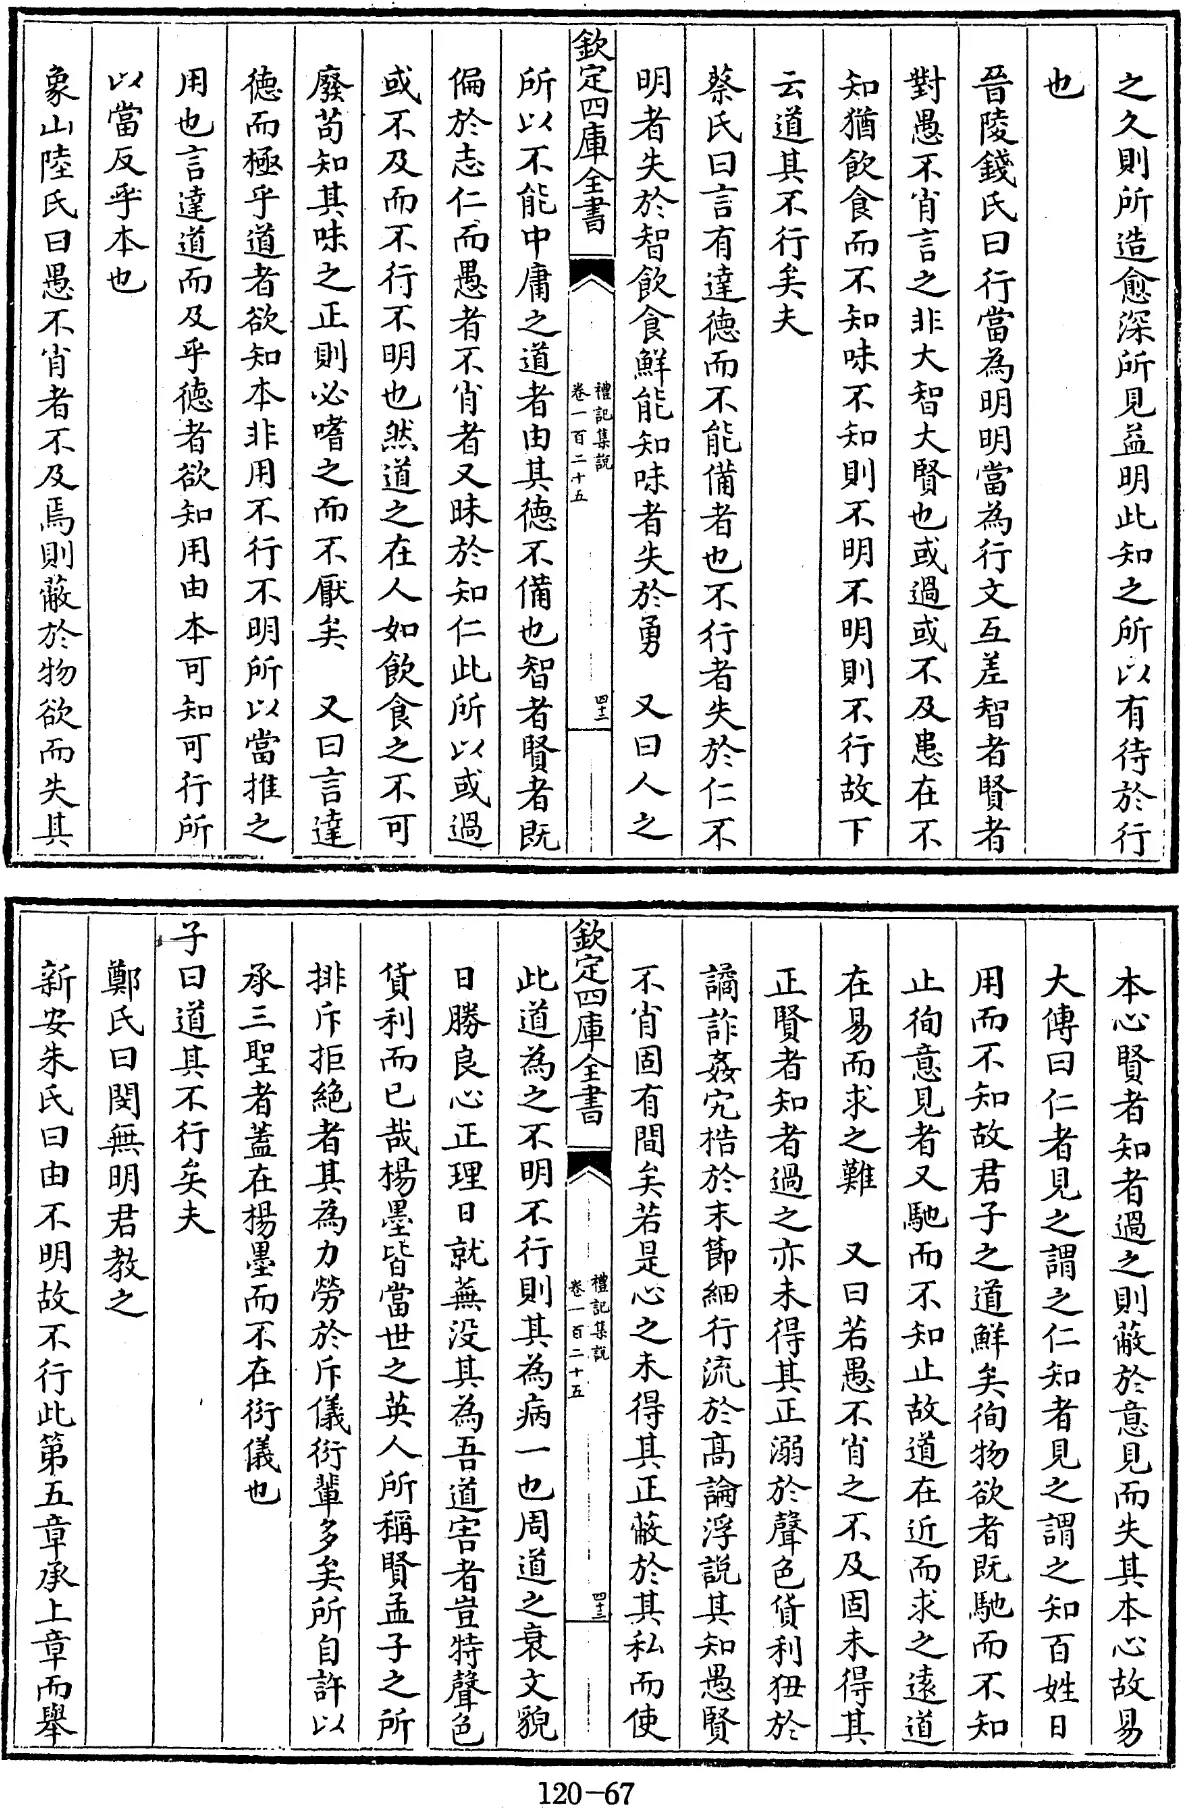 之久則所造愈深所見益明此知之所以有待於行
也
晉陵錢氏曰行當為明明當為行文互差智者賢者
對愚不肖言之非大智大賢也或過或不及患在不
知猶飲食而不知味不知則不明不明則不行故下
云道其不行矣夫
蔡氏曰言有達德而不能備者也不行者失於仁不
明者失於智飲食鮮能知味者失於勇　又曰人之
欽定四庫全書
禮記集說
卷一百二十五
四十二
所以不能中庸之道者由其德不備也智者賢者既
偏於志仁而愚者不肖者又昧於知仁此所以或過
或不及而不行不明也然道之在人如飲食之不可
廢苟知其味之正則必嗜之而不厭矣　又曰言達
德而極乎道者欲知本非用不行不明所以當推之
用也言達道而及乎德者欲知用由本可知可行所
以當反乎本也
象山陸氏曰愚不肖者不及焉則蔽於物欲而失其
本心賢者知者過之則蔽於意見而失其本心故易
大傳曰仁者見之謂之仁知者見之謂之知百姓日
用而不知故君子之道鮮矣徇物欲者既馳而不知
止徇意見者又馳而不知止故道在近而求之遠道
在易而求之難　又曰若愚不肖之不及固未得其
正賢者知者過之亦未得其正溺於聲色貨利狃於
譎詐姦宄梏於末節細行流於高論浮說其知愚賢
不肖固有間矣若是心之未得其正蔽於其私而使
欽定四庫全書
禮記集說
卷一百二十五
四十三
此道為之不明不行則其為病一也周道之衰文貌
日勝良心正理日就蕪没其為吾道害者豈特聲色
貨利而已哉楊墨皆當世之英人所稱賢孟子之所
排斥拒絶者其為力勞於斥儀衍輩多矣所自許以
承三聖者蓋在楊墨而不在衍儀也
子曰道其不行矣夫
鄭氏曰閔無明君教之
新安朱氏曰由不明故不行此第五章承上章而舉
120-67